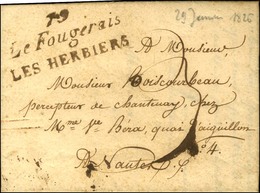 79
Le Fougerais
LES HERBIERS
29 Janvier 1826
A Monsieur,
Monsieur Boiscourbeau,
percepteur de chantenay, chez
Mme Ve Bora, quai d'aiguillon
n° 4.
A Nantes